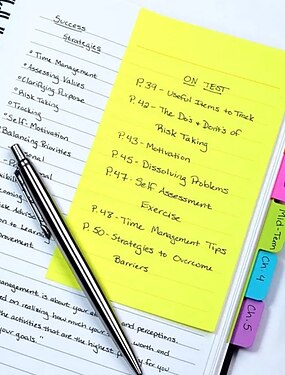 Success
Strategies
Time Management
Assessing Values
Clarifying Purpose
Risk Taking
Tracking
Self-Motivation
Balancing Priorities
ON TEST
P.39 - Useful Items to Track
P.42 - The Do's & Dont's of
Risk Taking
P.43 - Motivation
P.45 - Dissolving Problems
P.47 - Self Assessment
Exercise
P.48 - Time Management Tips
P.50 - Strategies to Overcome
Barriers
Mid-Term
Ch 4
Ch. 5
management is about your
and perceptions.
on realizing how much your
worth and
the activities that are the highest
for you
your goals."